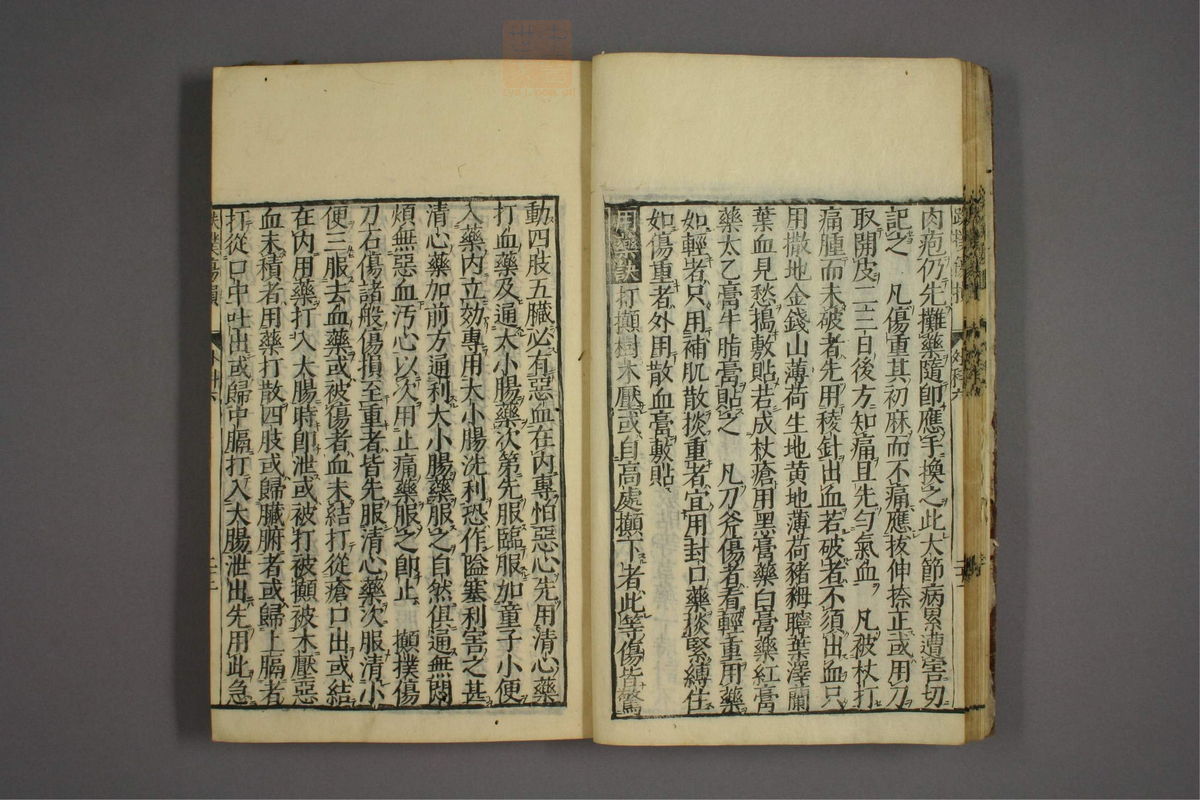 肉疱仍先攤藥隨即應手換之此大節病累遭害切
記之　凡傷重其初麻而不痛應拔伸捺正或用刀
取開皮二三日後方知痛且先勻氣血　凡被杖打
痛腫而未破者先用稜針出血若破者不須出血只
用撒地金錢山薄荷生地黄地薄荷豬葉澤蘭
葉血見愁搗敷貼若成杖瘡用黑膏藥白膏藥紅膏
藥太乙膏牛脂膏貼之　凡刀斧傷者看輕重用藥
如輕者只用補肌散掞重者宜用封口藥掞緊縛住
如傷重者外用散血膏敷貼
用藥訣　打攧樹木壓或自高處攧下者此等傷皆驚
動四肢五臟必有惡血在内專怕惡心先用清心藥
打血藥及通大小腸藥次第先服臨服加童子小便
入藥内立効專用大小腸洗利恐作隘塞利害之甚
清心藥加前方通利大小腸藥服之自然俱通無悶
煩無惡血汚心以次用止痛藥服之即止　攧撲傷
刀石傷諸般傷損至重者皆先服清心藥次服清小
便三服去血藥或被傷者血未結打從瘡口出或結
在内用藥打入大腸時即泄或被打被攧被木壓惡
血未積者用藥打散四肢或歸臟腑者或歸上膈者
打從口中吐出或歸中膈打入大腸泄出先用此急